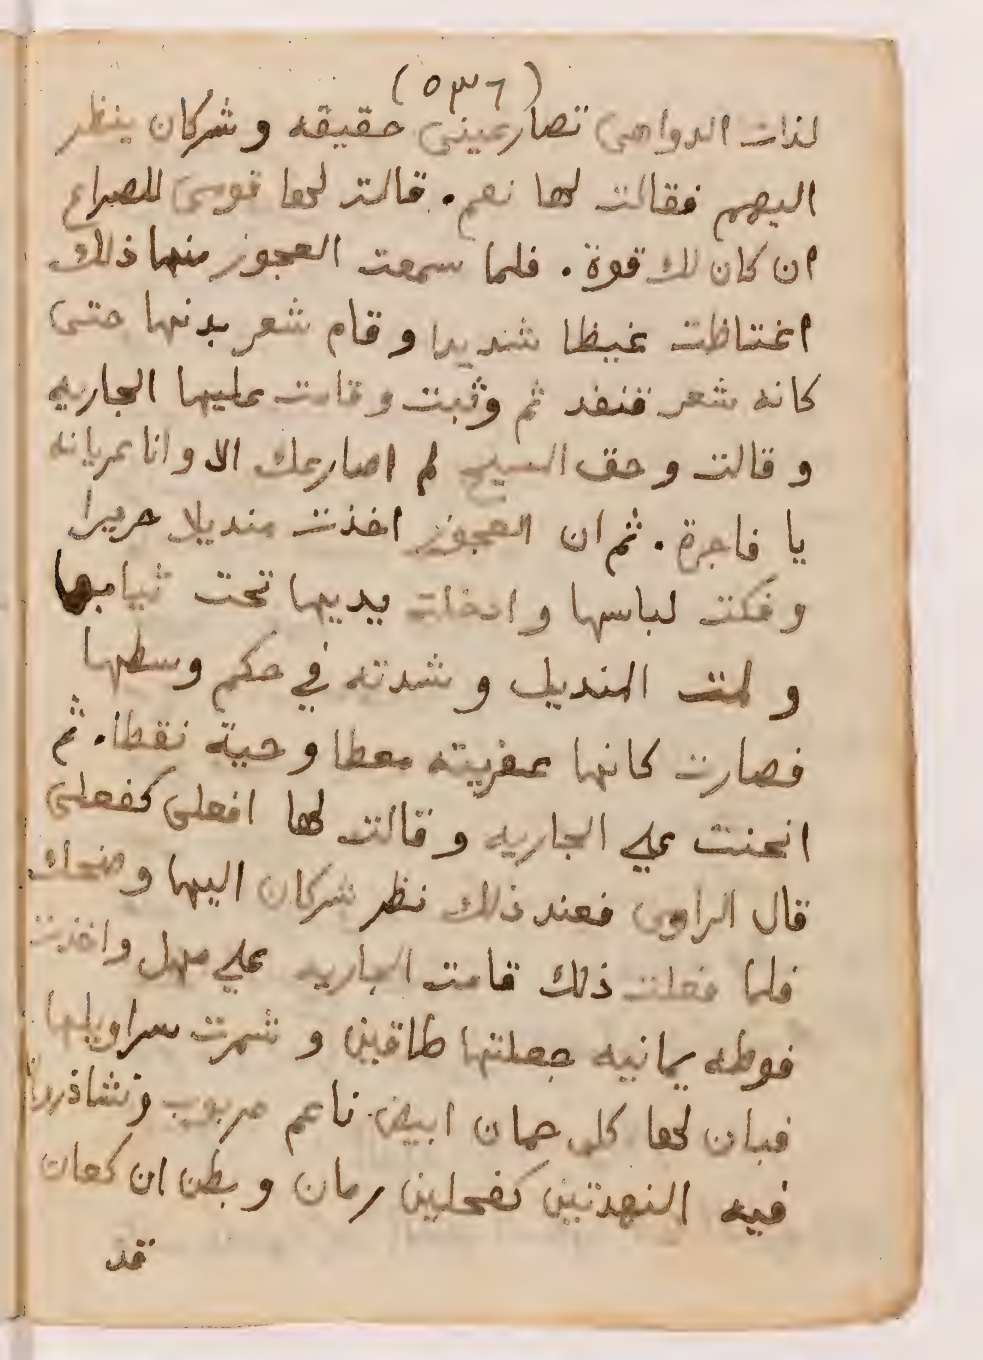 (٥٣٦)
لذات الدواهى تصارعينى حقيقه وشركان ينظر
اليهم فقالت لها نعم . قالت لها قومى للصراع
ان كان لك قوة . فلما سمعت العجوز منها ذلك
اغتاظت غيظا شديدا وقام شعر بدنها حتى
كانه شعر قنفد ثم وثبت وقامت عليها الجاريه
وقالت وحق المسيح لم اصارعك الا وانا عريانه
يا فاجرة . ثم ان العجوز اخذت منديلا حريرا
وفكت لباسها وادخلت يديها تحت ثيابها
ولمت المنديل وشدته في حكم وسطها
فصارت كانها عفريته معطا وحية نقطا . ثم
انحنت علي الجاريه وقالت لها افعلى كفعلى
قال الراوى فعند ذلك نظر شركان اليها وضحك
فلما فعلت ذلك قامت الجاريه علي مهل واخذت
فوطه يمانيه جعلتها طاقين وشمرت سراويلها
فبان لها ابيض ناعم مربوب
فيه النهدين كفحلين رمان وبطن